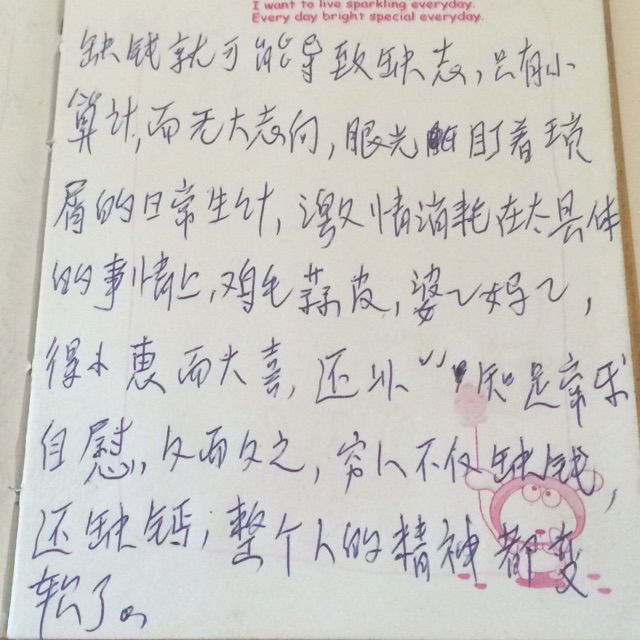 I want to live sparkling everyday.
Every day bright special everyday.
缺钱就可能导致缺志，只有小
算计，而无大志向，眼光盯着琐
屑的日常生计，激情消耗在太具体
的事情上，鸡毛蒜皮，婆婆妈妈，
得小惠而大喜，还以“知足常乐
自慰，久而久之，穷人不仅缺钱，
还缺钙；整个人的精神都变
软了。